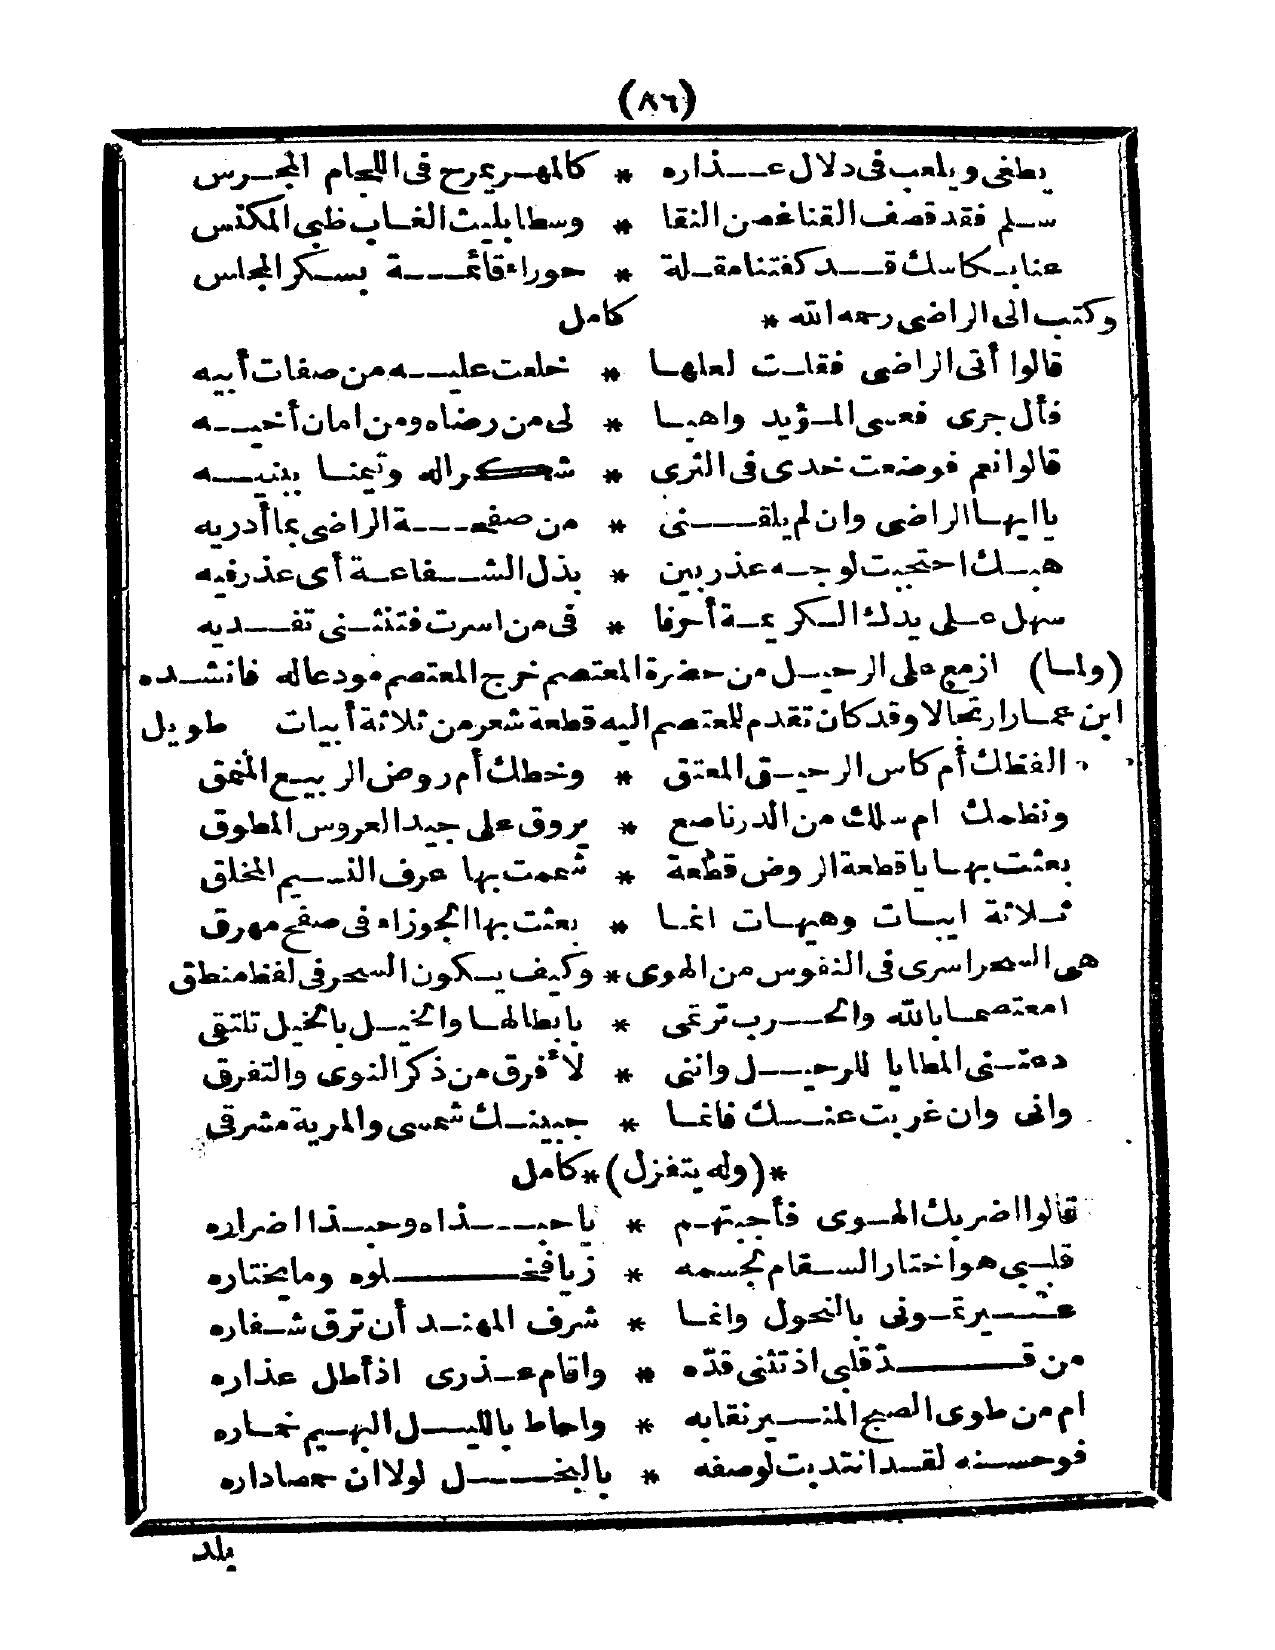 (٨٦)
يطغى ويلعب فى دلال عـذاره * كالمهـر يمرح فى اللجام المجـرس
سـلم فقد قصف القنا غصن النقا * وسطا بليث الغـاب ظبى المكنس
عنا بـكاسك قـد كفتنا مقـلة * حوراء قائمـة بسـكر المجلس
وكتب الى الراضى رحمه الله * كامل
قالوا أتى الراضى فقلت لعلهـا * خلعت عليـه من صفات أبيه
فأل جرى فعسى المـؤيد واهبـا * لى من رضاه ومن امان أخيـه
قالوا نعم فوضعت خدى فى الثرى * شكرا له وتيمنـا ببنيـه
يا ايهـا الراضى وان لم يلقـنى * من صفحـة الراضى بما أدريه
هبـك احتجبت لوجـه عذر بين * بذل الشـفاعـة أى عذر فيه
سهل عـلى يدك الـكريمـة أحرفا * فى من اسرت فتنثـنى تفـديه
(ولمـا) ازمع على الرحيـل من حضرة المعتصم خرج المعتصم مودعا له فانشـده
ابن عمـار ارتجالا وقد كان تقدم للمعتصم اليه قطعة شعر من ثلاثة أبيات طويل
الفظك أم كاس الرحيـق المعتق * وخطك أم روض الربيـع المنمق
ونظمك ام سلك من الدر ناصع * يروق على جيد العروس المطوق
بعثت بهـا يا قطعة الروض قطعة * شممت بها عرف النسـيم المخلق
ثـلاثة ابيـات وهيهـات انمـا * بعثت بها الجوزاء فى صفح مهرق
هى السحر اسرى فى النفوس من الهوى * وكيف يـكون السحر فى لفظ منطق
امعتصمـا بالله والحـرب ترتمى * بابطالهـا والخيـل بالخيل تلتقى
دعتـنى المطايا للرحيـل واننى * لأفرق من ذكر النوى والتفرق
وانى وان غربت عنـك فانمـا * جبينـك شمسى والمرية مشرقى
*(وله يتغزل)* كامل
قالوا اضر بك الهـوى فأجبتهـم * يا حبـذاه وحبـذا اضراره
قلـبى هو اختار السـقام لجسمه * زيا فخـلوه وما يختاره
عـيرتمـونى بالنحول وانمـا * شرف المهنـد أن ترق شـفاره
من قـدّ قلبى اذ تثنى قدّه * واقام عـذرى اذ أطل عذاره
ام من طوى الصبح المنـير نقابه * واحاط بالليـل البهـيم خمـاره
فوحسـنه لقـد انتدبت لوصفه * بالبخـل لولا ان حمصا داره
بلد